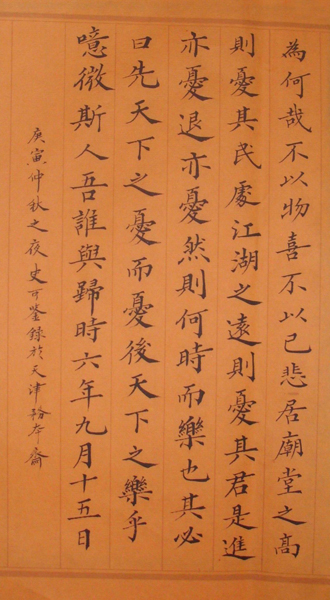 為何哉不以物喜不以己悲居廟堂之高
則憂其民處江湖之遠則憂其君是進
亦憂退亦憂然則何時而樂也其必
曰先天下之憂而憂後天下之樂乎
噫微斯人吾誰與歸時六年九月十五日
庚寅仲秋之夜史可鉴錄於天津本齋